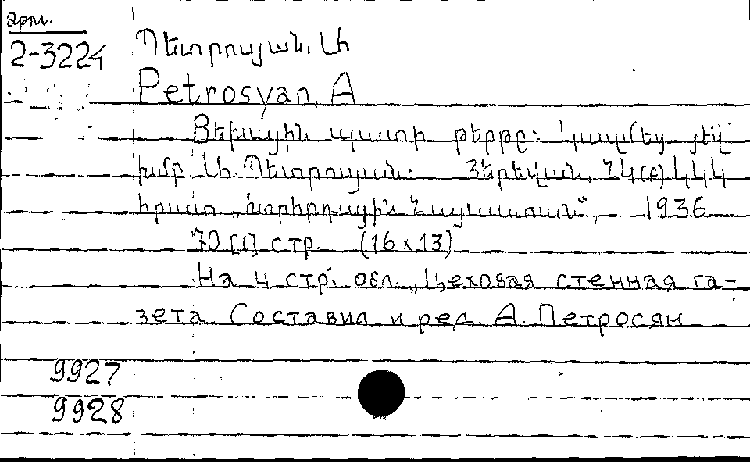 Արմ.
2-3224
Պետրոսյան, Ա
Petrosyan, A
Ցեխային պատի թերթը: Կազմեց յեվ
խմբ. Ա. Պետրոսյան: Յերեվան, ՀԿ(բ)Կ ԿԿ
հրատ. „Խորհրդային Հայաստան“, 1936
70 [1] стр (16x13)
На 4 стр. обл. „Цеховая стенная га-
зета. Составил и ред. А. Петросян
9927
9928